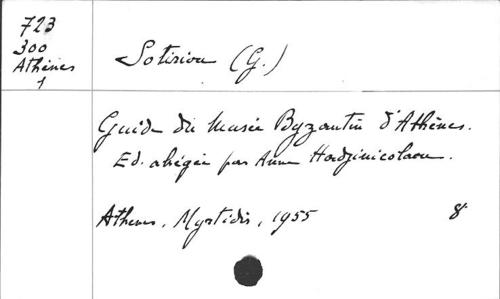 723
300
Athènes
1
Sotiriou (G.)
Guide du Musée Byzantin d'Athènes.
Ed. abégée par Anne Hadjinicolaou.
Athènes, Myrtidis, 1955 8°